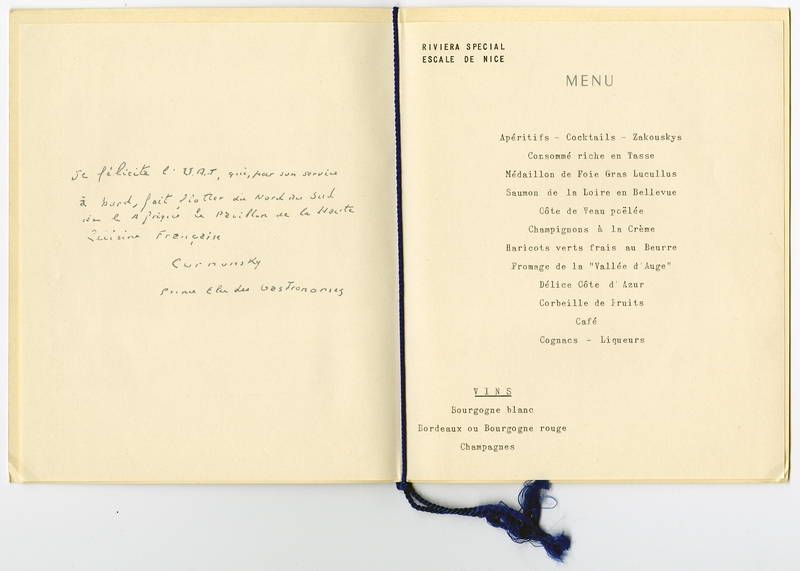 Je félicite l'U.A.T, qui, par son service
à bord, fait flotter du Nord au Sud
de l'Afrique le Pavillon de la Haute
Cuisine Française
Curnonsky
Prince Elu des Gastronomes
RIVIERA SPECIAL
ESCALE DE NICE
MENU
Apéritifs - Cocktails - Zakouskys
Consommé riche en Tasse
Médaillon de Foie Gras Lucullus
Saumon de la Loire en Bellevue
Côte de Veau poëlée
Champignons à la Crème
Haricots verts frais au Beurre
Fromage de la "Vallée d'Auge"
Délice Côte d'Azur
Corbeille de Fruits
Café
Cognacs - Liqueurs
VINS
Bourgogne blanc
Bordeaux ou Bourgogne rouge
Champagnes